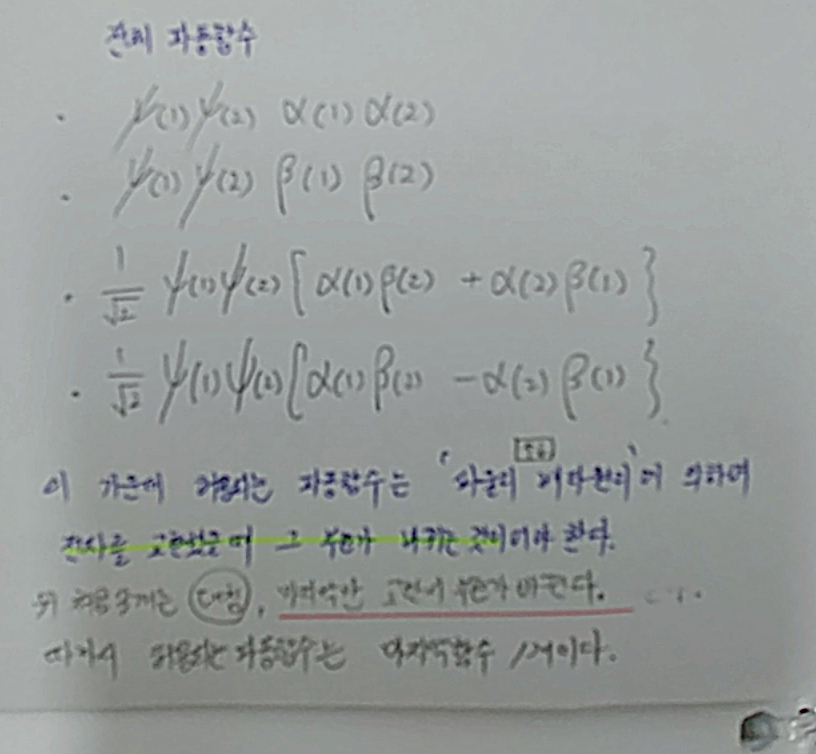 전체 파동함수
· ψ(1) ψ(2) α(1) α(2)
· ψ(1) ψ(2) β(1) β(2)
· 1/√2 ψ(1) ψ(2) [ α(1) β(2) + α(2) β(1) }
· 1/√2 ψ(1) ψ(2) [ α(1) β(2) - α(2) β(1) }
이 가운데 허용되는 파동함수는 '파울리 배타원리'에 의하여
전자를 교환했을 때 그 부호가 바뀌는 것이어야 한다.
위 처음 3개는 대칭, 마지막만 교환에 부호가 바뀐다.
따라서 허용되는 파동함수는 마지막함수 1개이다.